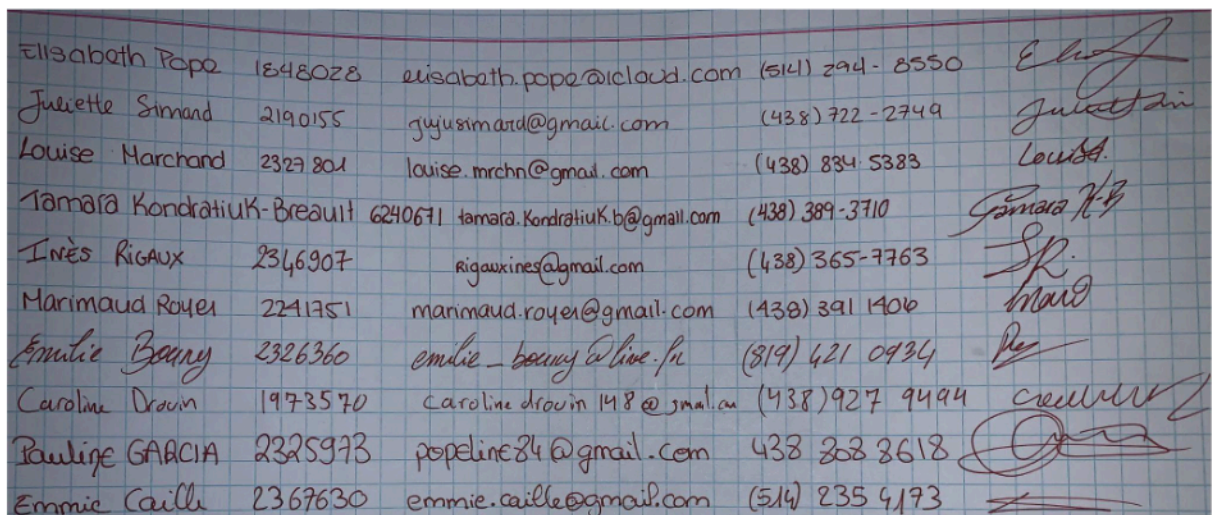 Elisabeth Pope 1848028 elisabeth.pope@icloud.com (514) 294-8550
Juliette Simard 2190155 jujusimard@gmail.com (438) 722-2749
Louise Marchand 2327801 louise.mrchn@gmail.com (438) 834 5383 Louise
Tamara Kondratiuk-Breault 6240671 tamara.kondratiuk.b@gmail.com (438) 389-3710 Tamara K-B
INÈS RIGAUX 2346907 Rigauxines@gmail.com (438) 365-7763
Marimaud Royer 2241751 marimaud.royer@gmail.com (438) 391 1406
Emilie Bouny 2326360 emilie_bouny@live.fr (819) 421 0934
Caroline Drouin 1973570 caroline drouin 148@gmail.com (438) 927 9494
Pauline GARCIA 2325973 popeline84@gmail.com 438 808 8618
Emmie Caille 2367630 emmie.caille@gmail.com (514) 235 4173